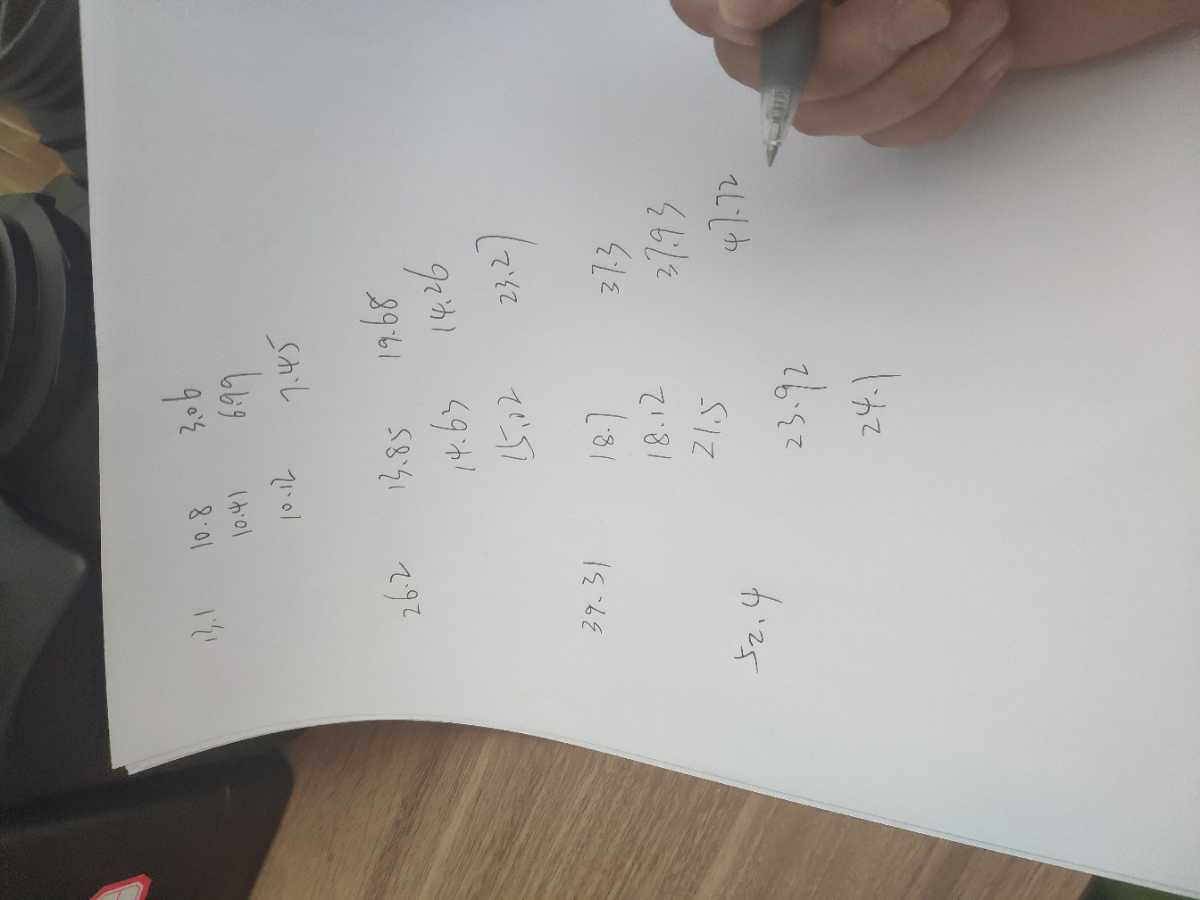 13.1 10.8 3.06
10.41 6.99
10.12 7.45
26.2 13.85 19.68
14.63 14.26
15.02 23.27
39.31 18.7 37.3
18.12 37.93
21.5 47.72
52.4 23.92
24.1